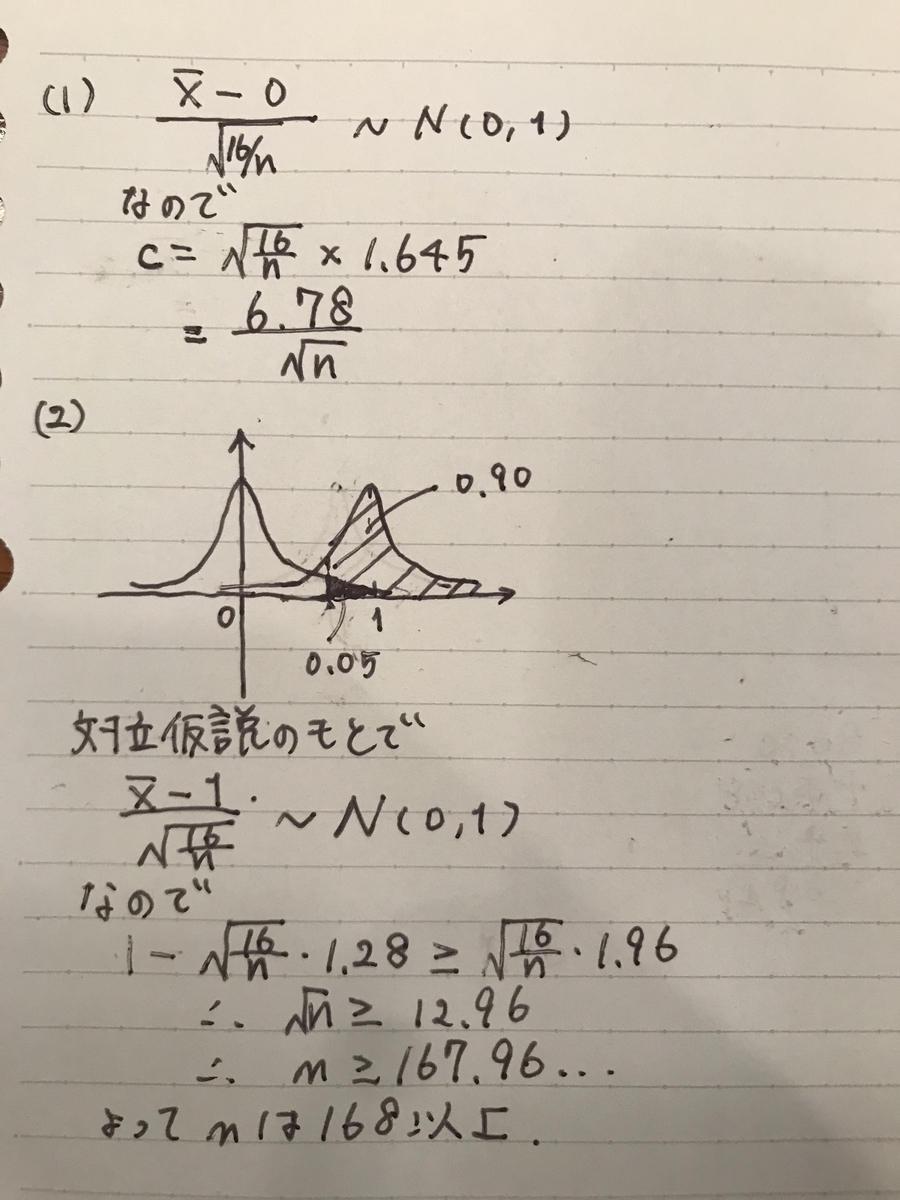 (1) (x̄ - 0) / √(16/n) ~ N(0,1)
なので
c = √(16/n) × 1.645
= 6.78 / √n
(2)
0.90
0 1
0.05
対立仮説のもとで
(x̄ - 1) / √(16/n) ~ N(0,1)
なので
1 - √(16/n) · 1.28 ≥ √(16/n) · 1.96
∴ √n ≥ 12.96
∴ n ≥ 167.96...
よって nは168以上.